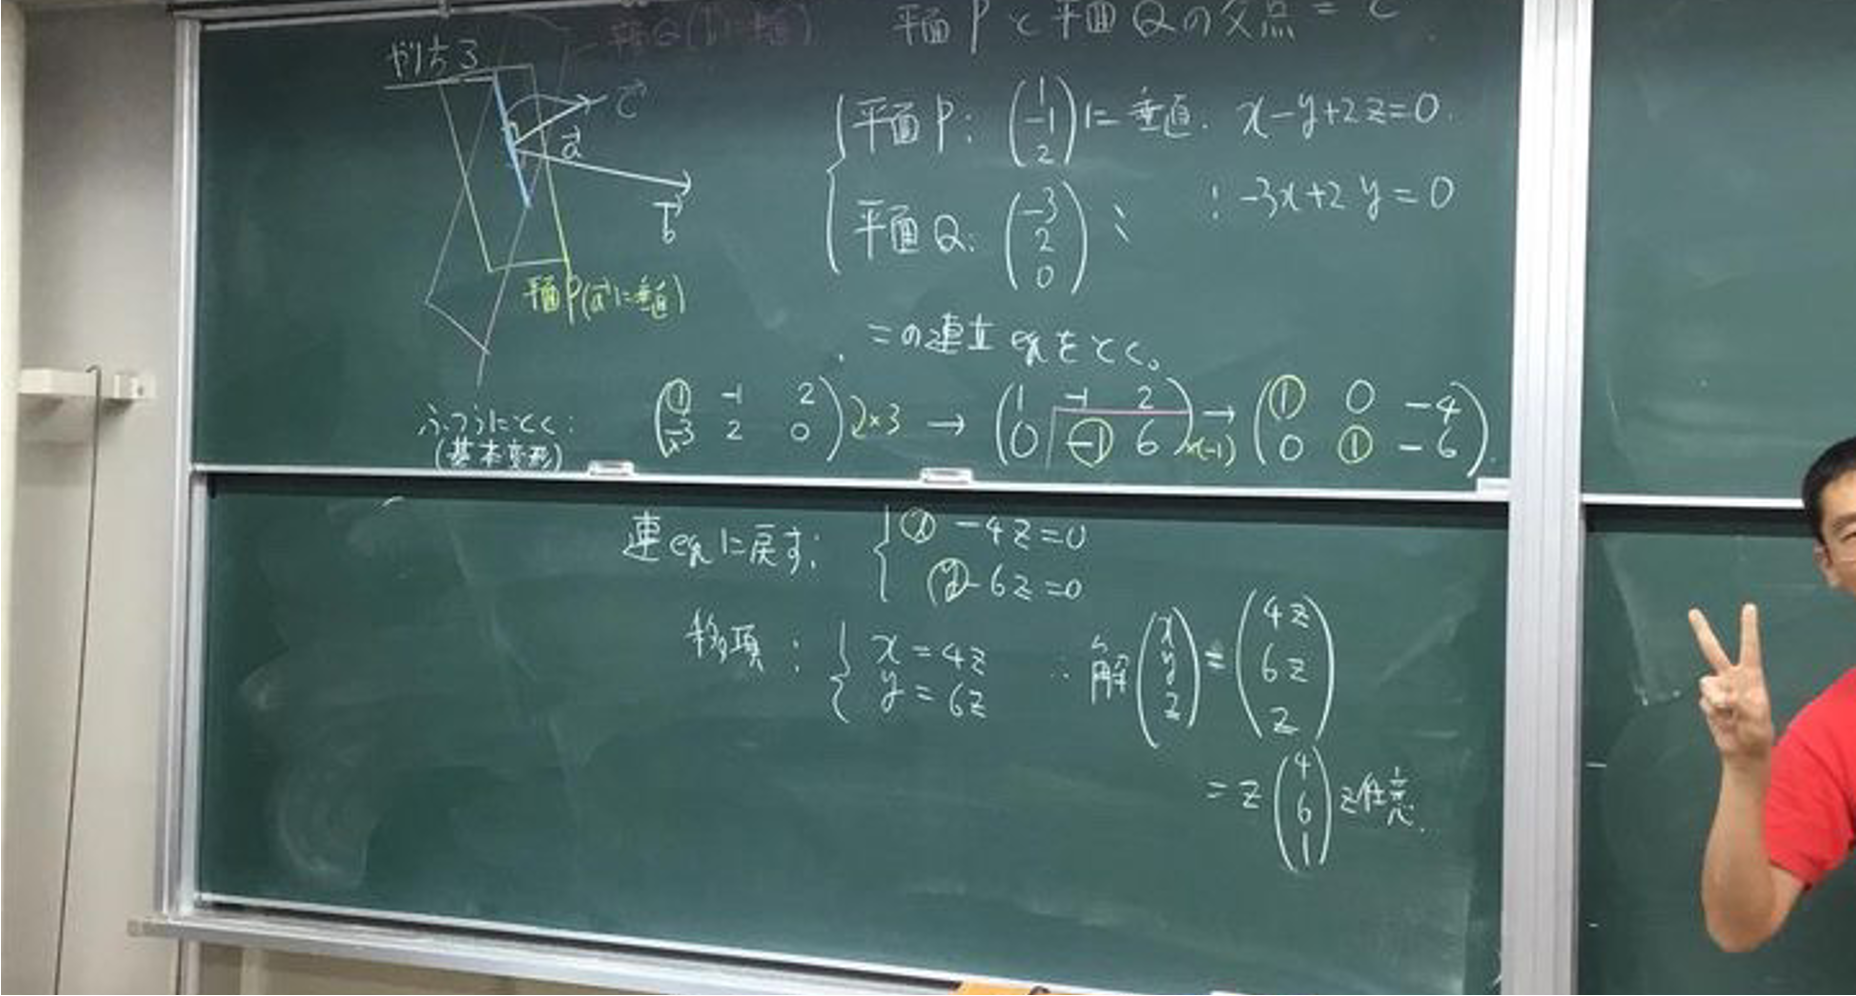 やり方3
平面Q(bに垂直)
平面Pと平面Qの交点 = c
c
a
b
平面P(aに垂直)
平面P: (1 -1 2)に垂直. x-y+2z=0.
平面Q: (-3 2 0) 〃 : -3x+2y=0
この連立eqをとく。
ふつうにとく:
(基本変形)
(1 -1 2
-3 2 0) ×3 → (1 -1 2
0 -1 6) ×(-1) → (1 0 -4
0 1 -6).
連eqに戻す: { x -4z=0
y-6z=0
移項: { x=4z
y=6z
∴解 (x y z) = (4z 6z z)
= z (4 6 1) z任意.